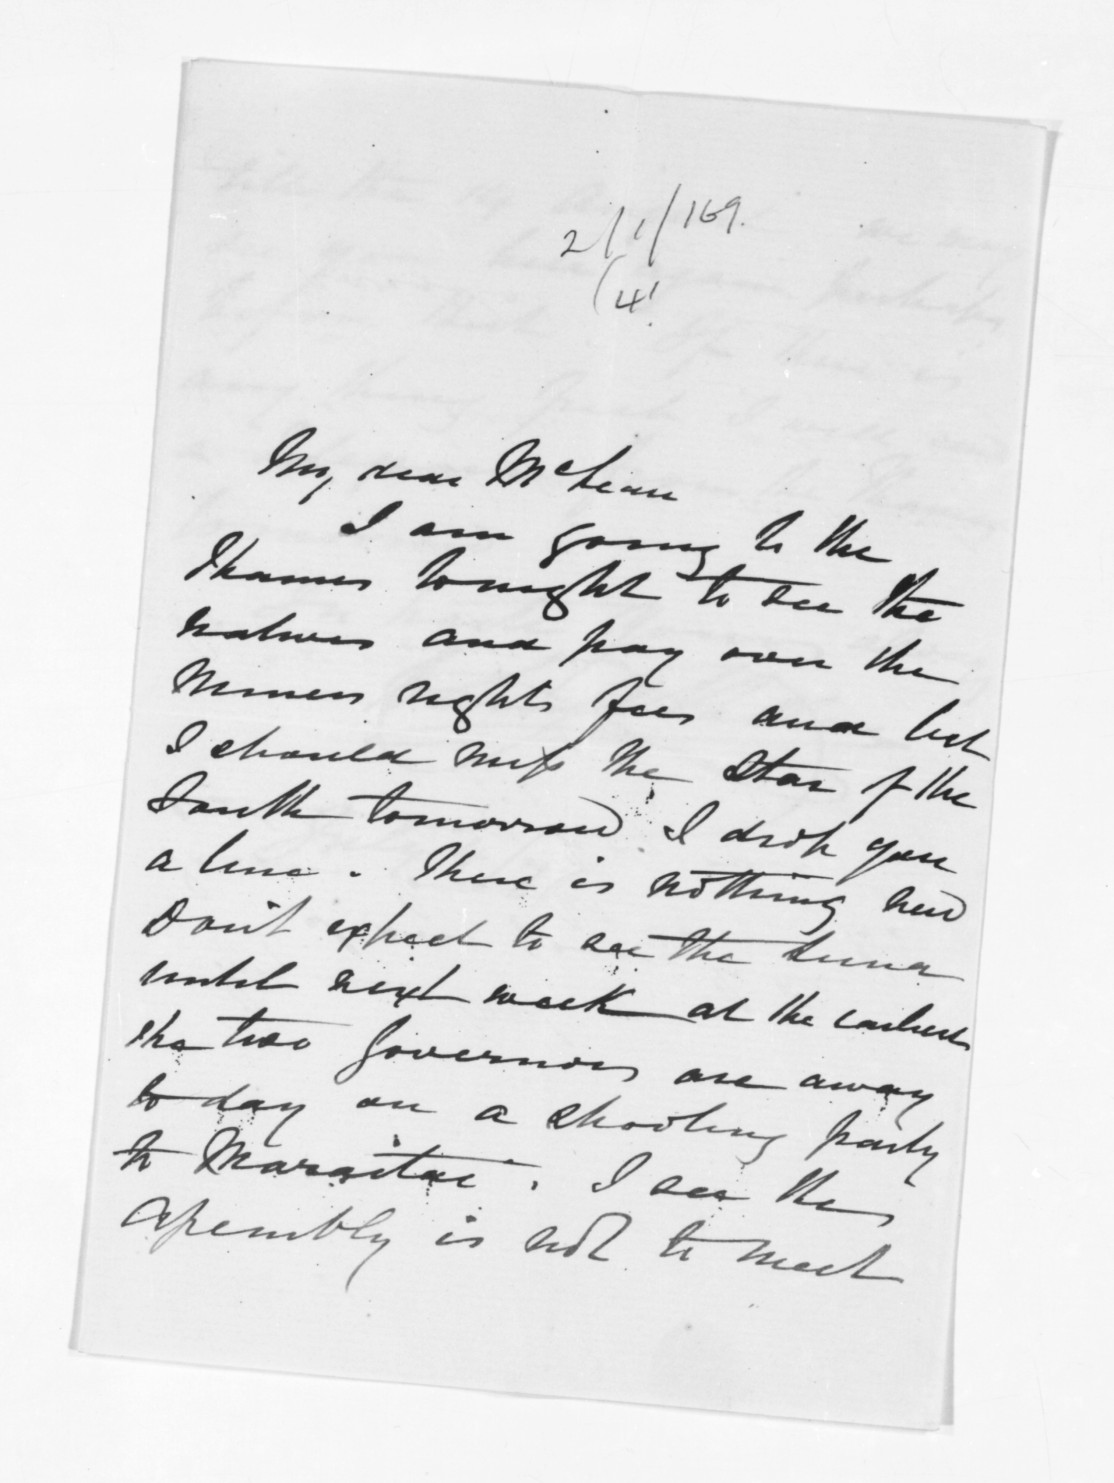 2/1/169.
(4!
My dear McLean
I am going to the
Thames tonight to see the
natives and pay over the
Miners rights fees and lest
I should miss the Star of the
South tomorrow I drop you
a line. There is nothing new
Don't expect to see the Sturt
until next week at the earliest
the two Governors are away
to day on a shooting party
to Maraitai. I see the
Assembly is not to meet